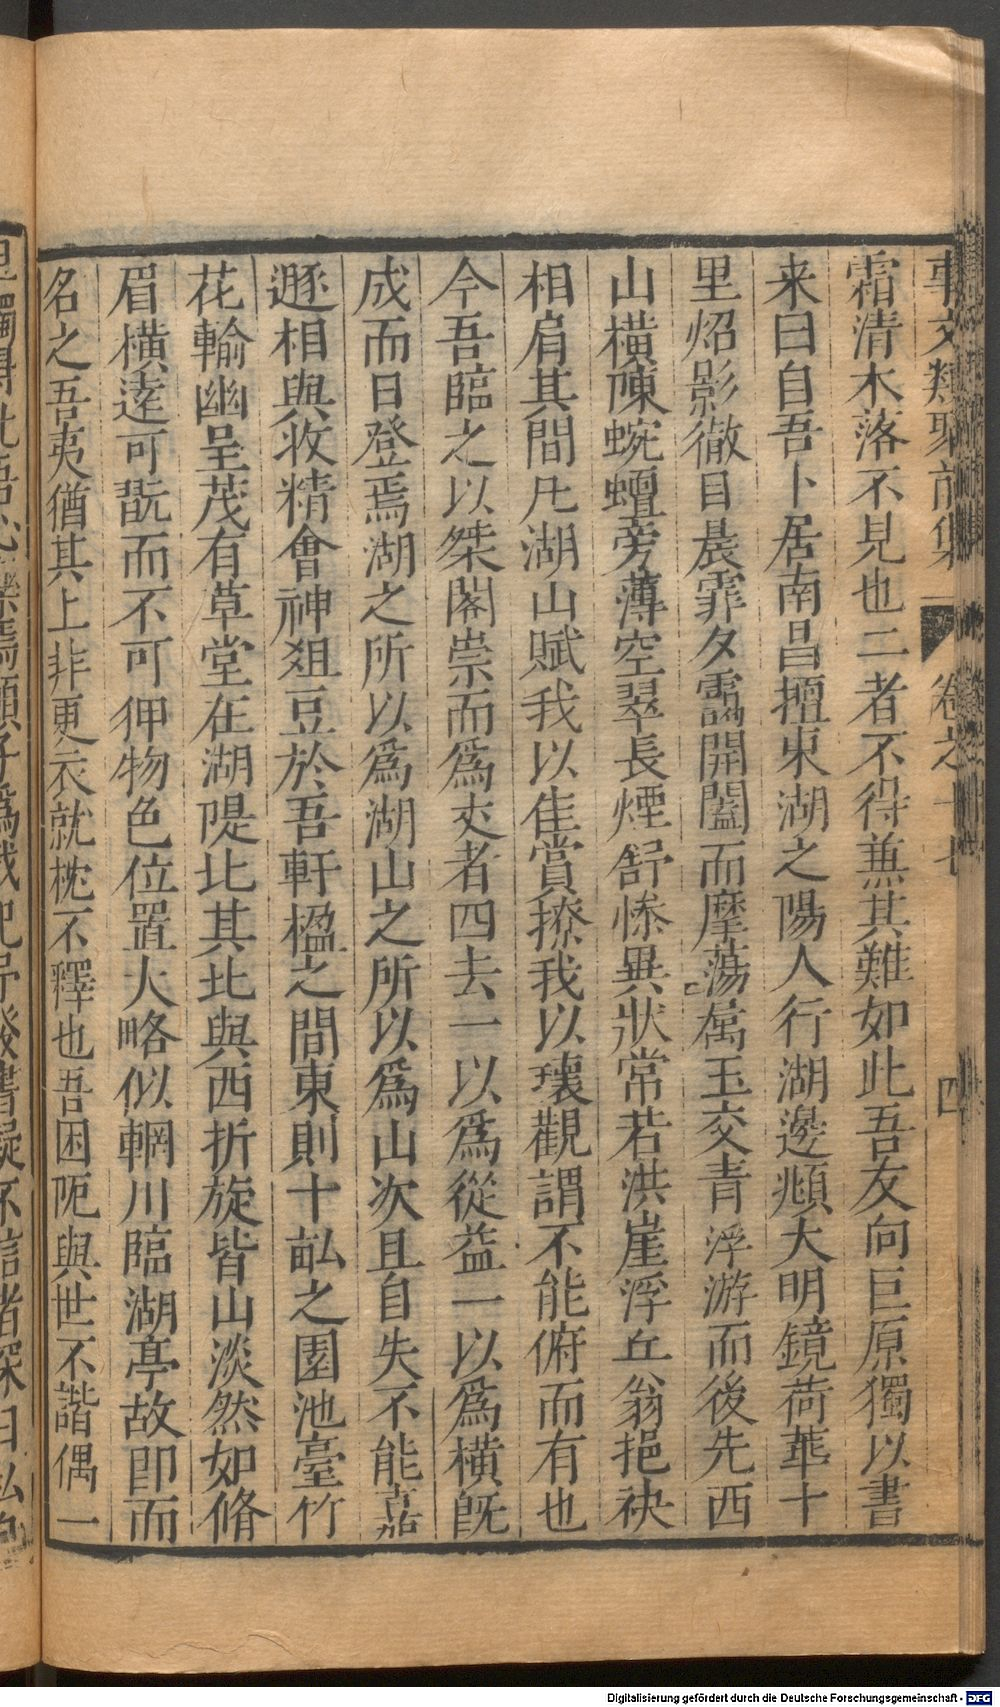 事文類聚前集 卷之十七 四
霜清木落不見也二者不得兼其難如此吾友向巨原獨以書
来曰自吾卜居南昌擅東湖之陽人行湖邊頫大明鏡荷華十
里炤影徹目晨霏夕靄開闔而摩蕩属玉交青浮游而後先西
山橫陳蜿蟺旁薄空翠長煙舒慘異狀常若洪崖浮丘翁挹袂
相肩其間凡湖山賦我以佳賞撩我以瓌觀謂不能俯而有也
今吾臨之以桀閣崇而爲丈者四去一以爲從益一以爲橫旣
成而日登焉湖之所以爲湖山之所以爲山次且自失不能高
遯相與收精會神俎豆於吾軒楹之間東則十畝之園池臺竹
花輸幽呈茂有草堂在湖隄比其北與西折旋皆山淡然如脩
眉橫逵可翫而不可狎物色位置大略似輞川臨湖亭故即而
名之吾夷猶其上非更衣就枕不釋也吾困阨與世不諧偶一
Digitalisierung gefördert durch die Deutsche Forschungsgemeinschaft - DFG